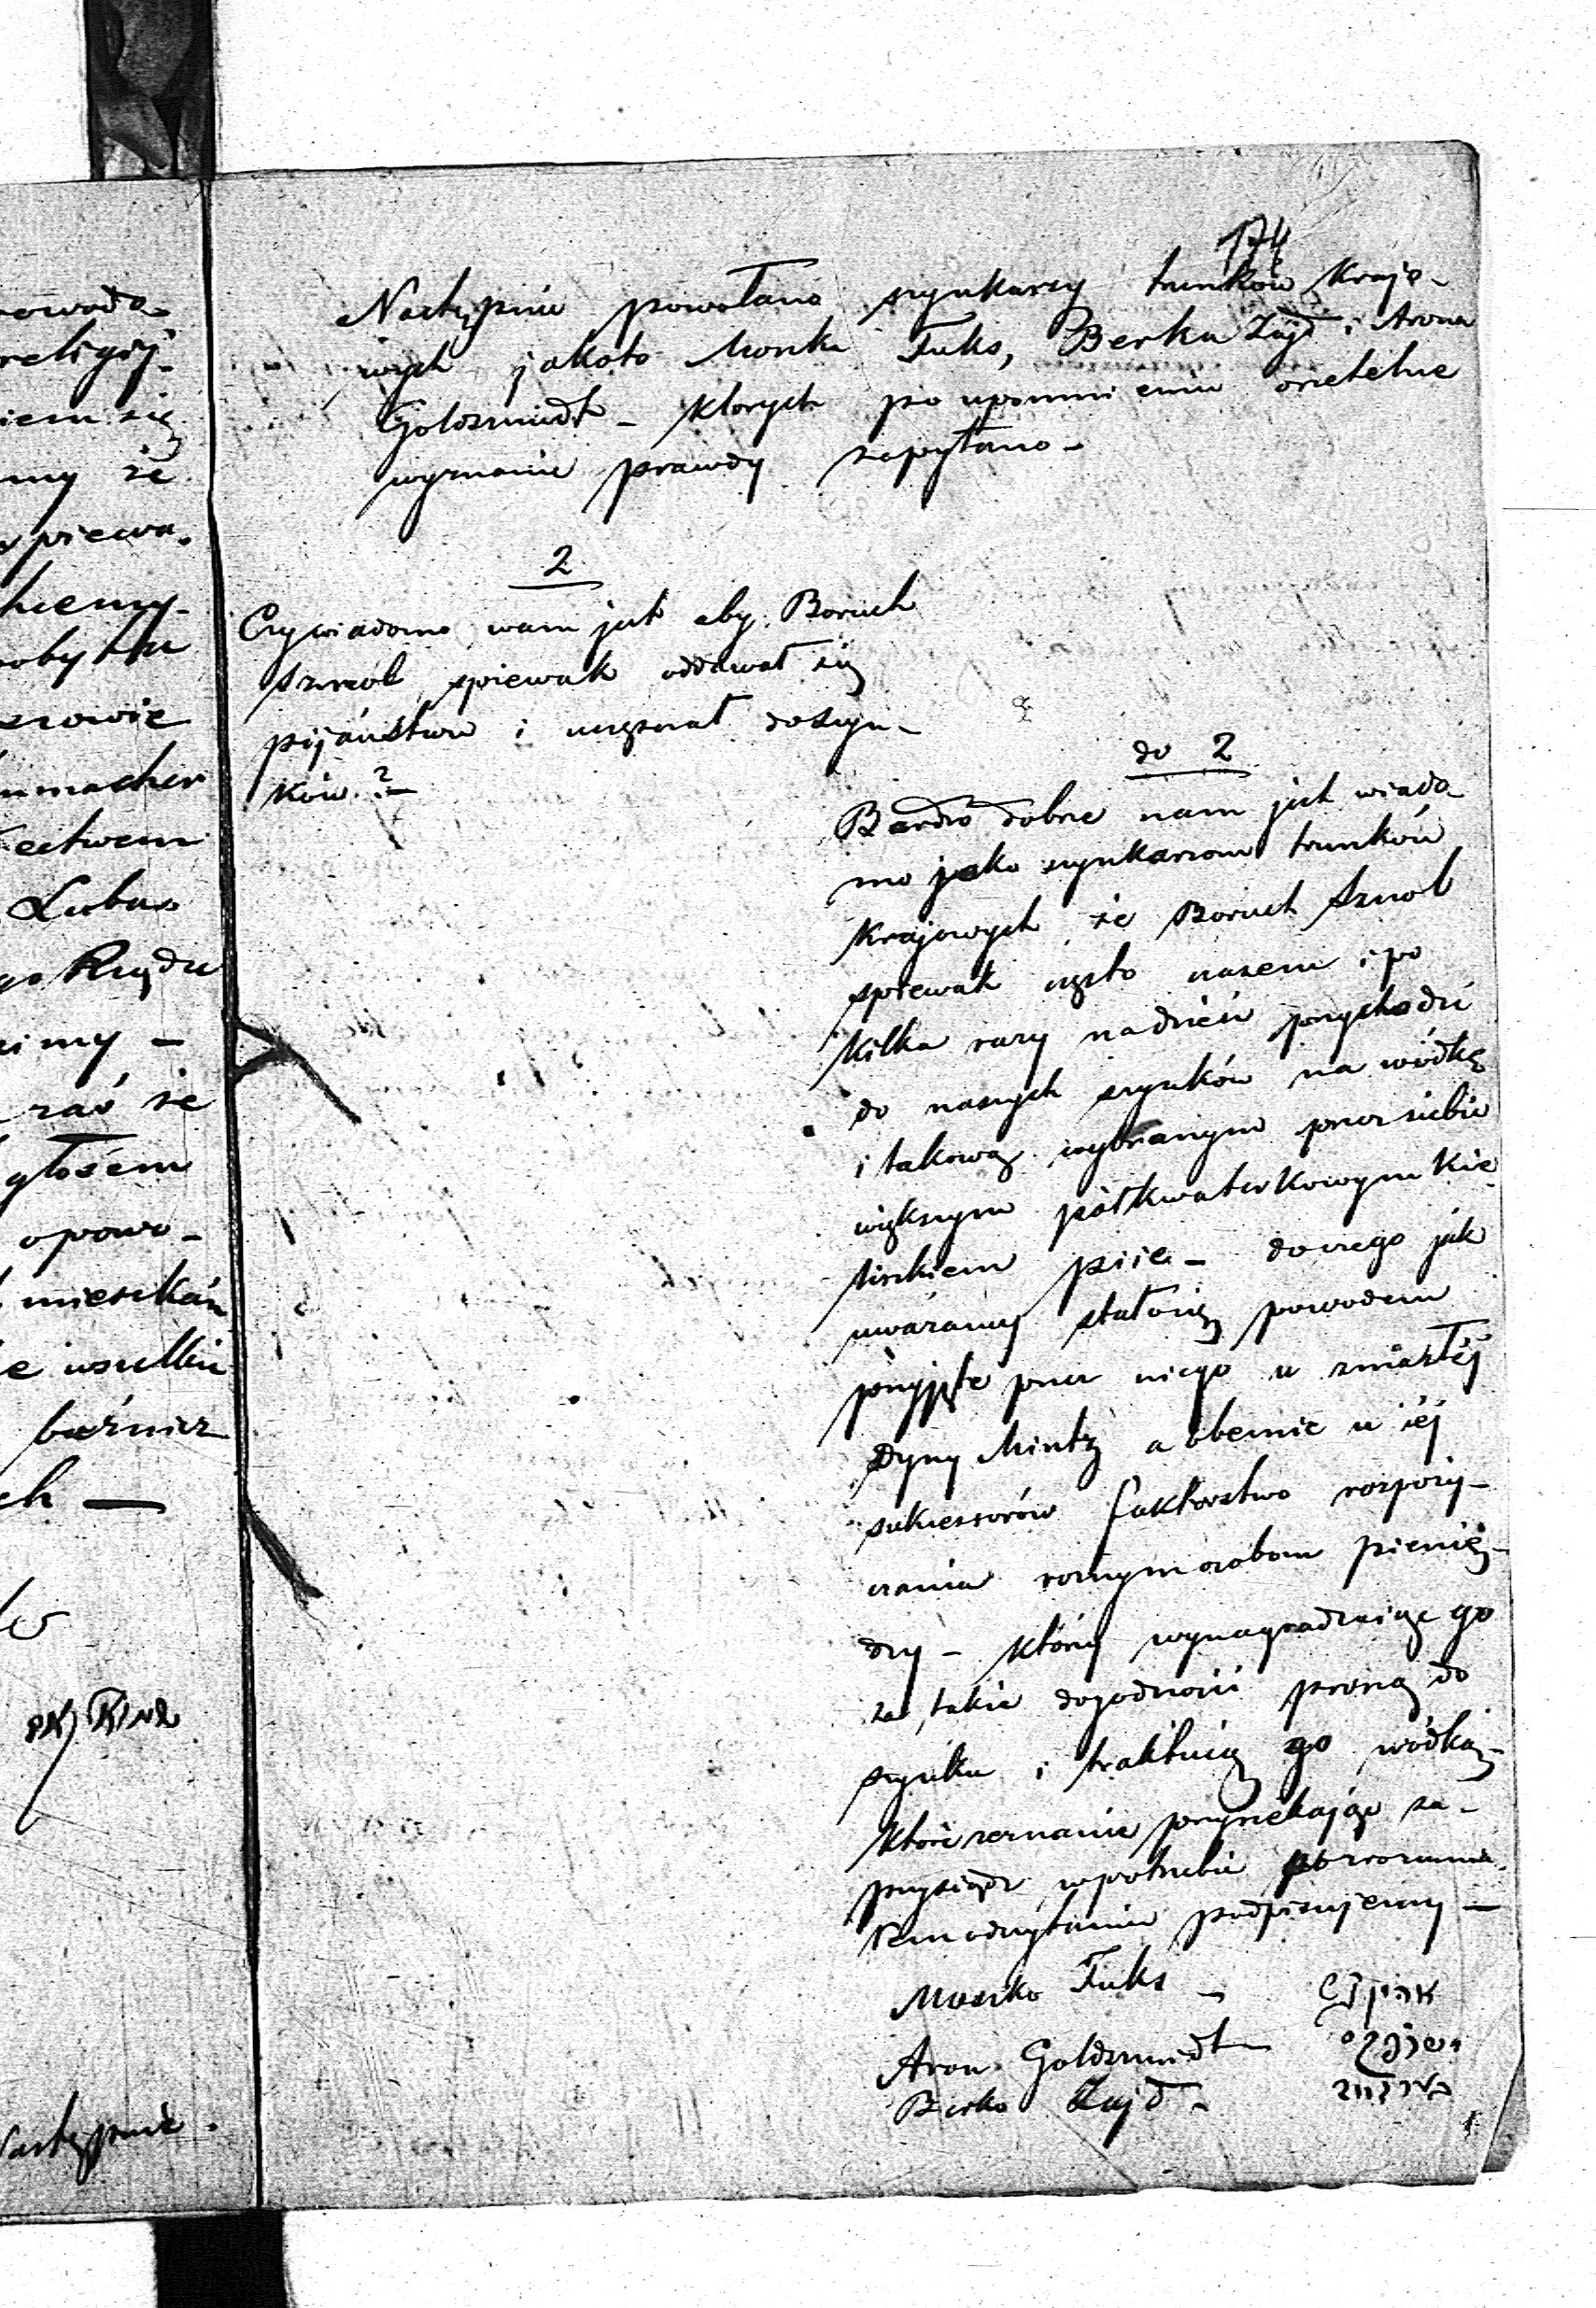 174
Następnie powołano szynkarzy trunków krajo-
wych jakoto Moszka Fuks, Berka Zajd i Arona
Goldszmidt – ktorych po upomnieniu o rzetelne
wyznanie prawdy zapytano –
2
Czy wiadomo wam jest aby Boruch
Szmol spiewak oddawał się
pijaństwu i uczęszczał do szyn-
ków? –
do 2
Bardzo dobrze nam jest wiado-
mo jako szynkarzom trunków
krajowych że Boruch Szmol
spiewak często czasem i po
kilka razy na dzień przychodzi
do naszych szynków na wódkę
i takową wybranym przez siebie
większym półkwaterkowym kie-
liszkiem piie – do czego jak
uważamy stało się powodem
przyjęte przez niego u zmarłéj
Dyny Mintz a obecnie u iéj
sukcessorów faktorstwo rozpoży-
czania roznym osobom pienię-
dzy – którzy wynagradzaiąc go
za takie dogodności proszą do
szynku i traktuią go wódką –
które zeznanie przyrzekając za-
przysiądz w potrzebie po zrozumia-
łem odczytaniu podpisujemy –
Moszko Fuks –
Aron Goldszmidt
Berko Zajd –
rowada-
religij-
iem się
my że
spiewa-
hcemy-
pobytu
macher
ectwem
Luba-
go Rządu
imy –
zaś że
głosem
opowo-
mieszkań
e wszelkie
bużnicz
ch —
Następnie